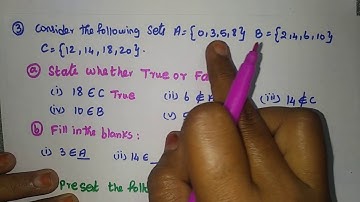 ③ Consider the following sets A = {0,3,5,8} B = {2,4,6,10}
C = {12,14,18,20}.
ⓐ State whether True or
(i) 18 ∈ C True (ii) 6 ∉ (iii) 14 ∉ C
(iv) 10 ∈ B (v)
ⓑ Fill in the blanks:
(i) 3 ∈ A (ii) 14 ∈
Present the